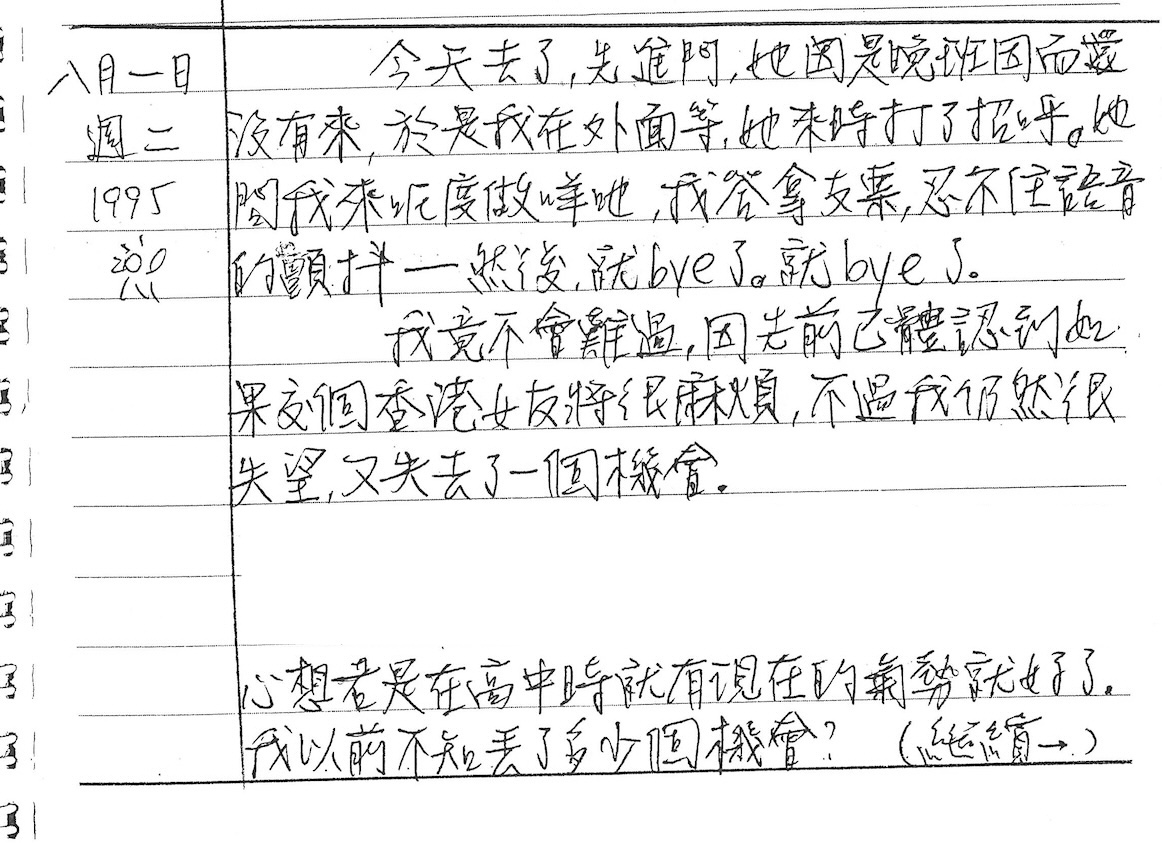 八月一日
週二
1995
今天去了,先進門,她因是晚班因而還
沒有來,於是我在外面等,她來時打了招呼。她
問我來呢度做咩吔,我答拿支票,忍不住語音
的顫抖—然後,就bye了。就bye了。
我竟不會難過,因先前已體認到如
果交個香港女友將很麻煩,不過我仍然很
失望,又失去了一個機會.
心想若是在高中時就有現在的氣勢就好了.
我以前不知丟了多少個機會? (繼續→)